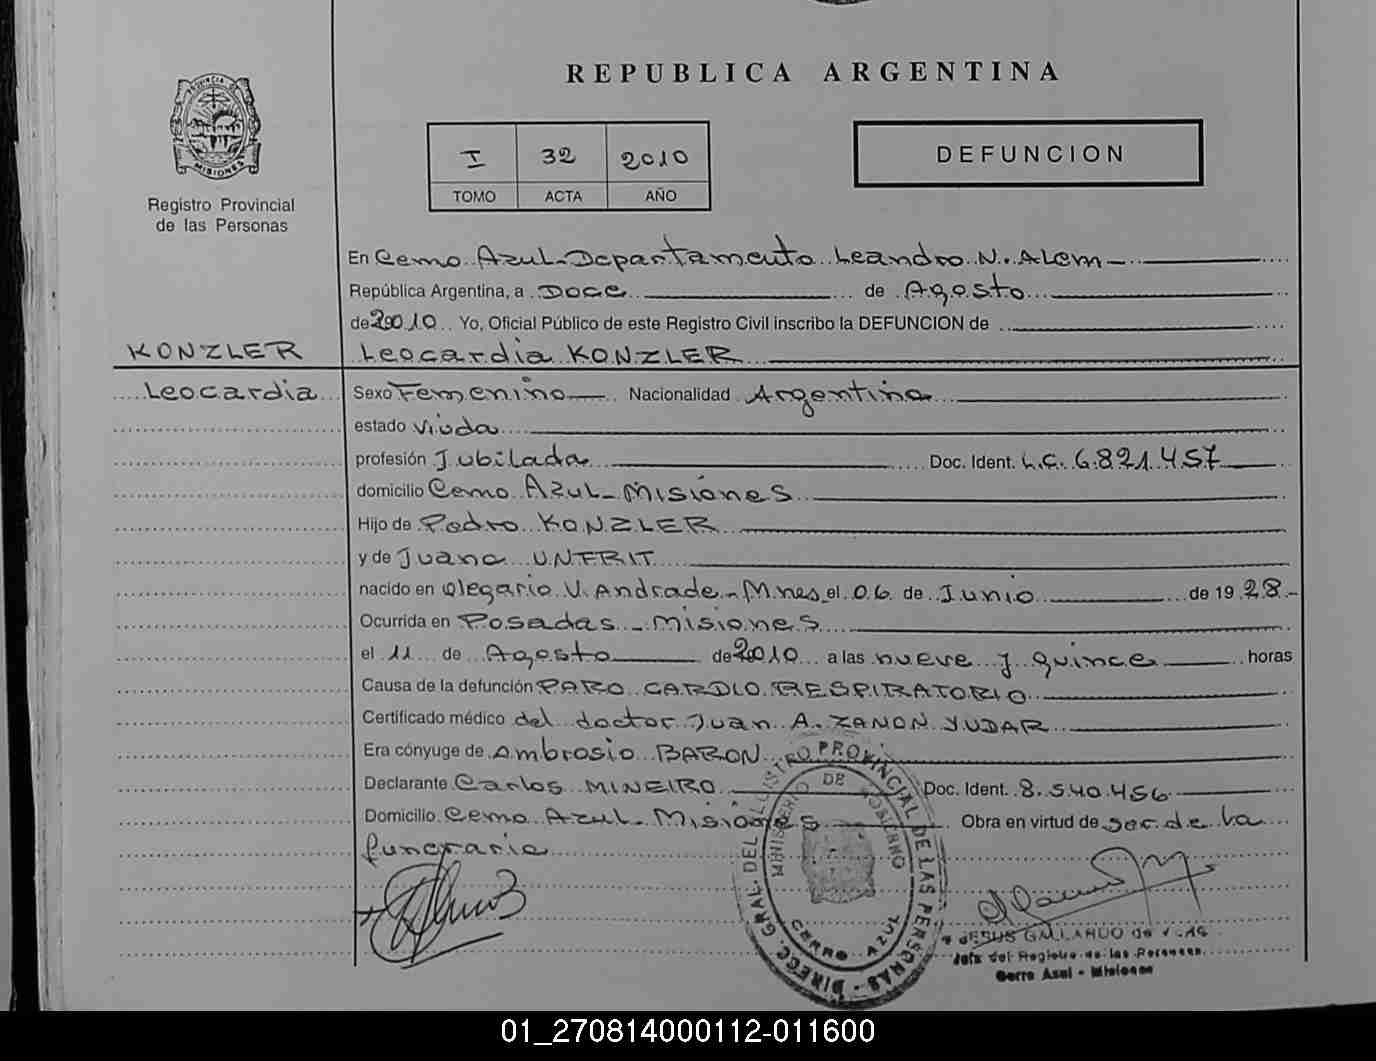 REPUBLICA ARGENTINA
PROVINCIA DE MISIONES
Registro Provincial
de las Personas
I 32 2010
TOMO ACTA AÑO
DEFUNCION
En Cerro Azul - Departamento Leandro N. Alem -
República Argentina, a Doce de Agosto
de 2010 Yo, Oficial Público de este Registro Civil inscribo la DEFUNCION de
KONZLER Leocardia KONZLER
Leocardia Sexo Femenino Nacionalidad Argentina
estado Viuda
profesión Jubilada Doc. Ident. L.C. 6.821.457
domicilio Cerro Azul - Misiones
Hijo de Pedro KONZLER
y de Juana UNFRIT
nacido en Olegario V. Andrade - Mnes el 06 de Junio de 1928 -
Ocurrida en Posadas - Misiones
el 11 de Agosto de 2010 a las nueve y quince horas
Causa de la defunción PARO CARDIO RESPIRATORIO
Certificado médico del doctor Juan A. ZANON YUDAR
Era cónyuge de Ambrosio BARON
Declarante Carlos MINEIRO Doc. Ident. 8.540.456
Domicilio Cerro Azul - Misiones Obra en virtud de ser de la
funeraria
DIRECC. GRAL. DEL REGISTRO PROVINCIAL DE LAS PERSONAS
MINISTERIO DE GOBIERNO
CERRO AZUL
JESUS GALLARDO de
Jefa del Registro de las Personas
Cerro Azul - Misiones
01_270814000112-011600